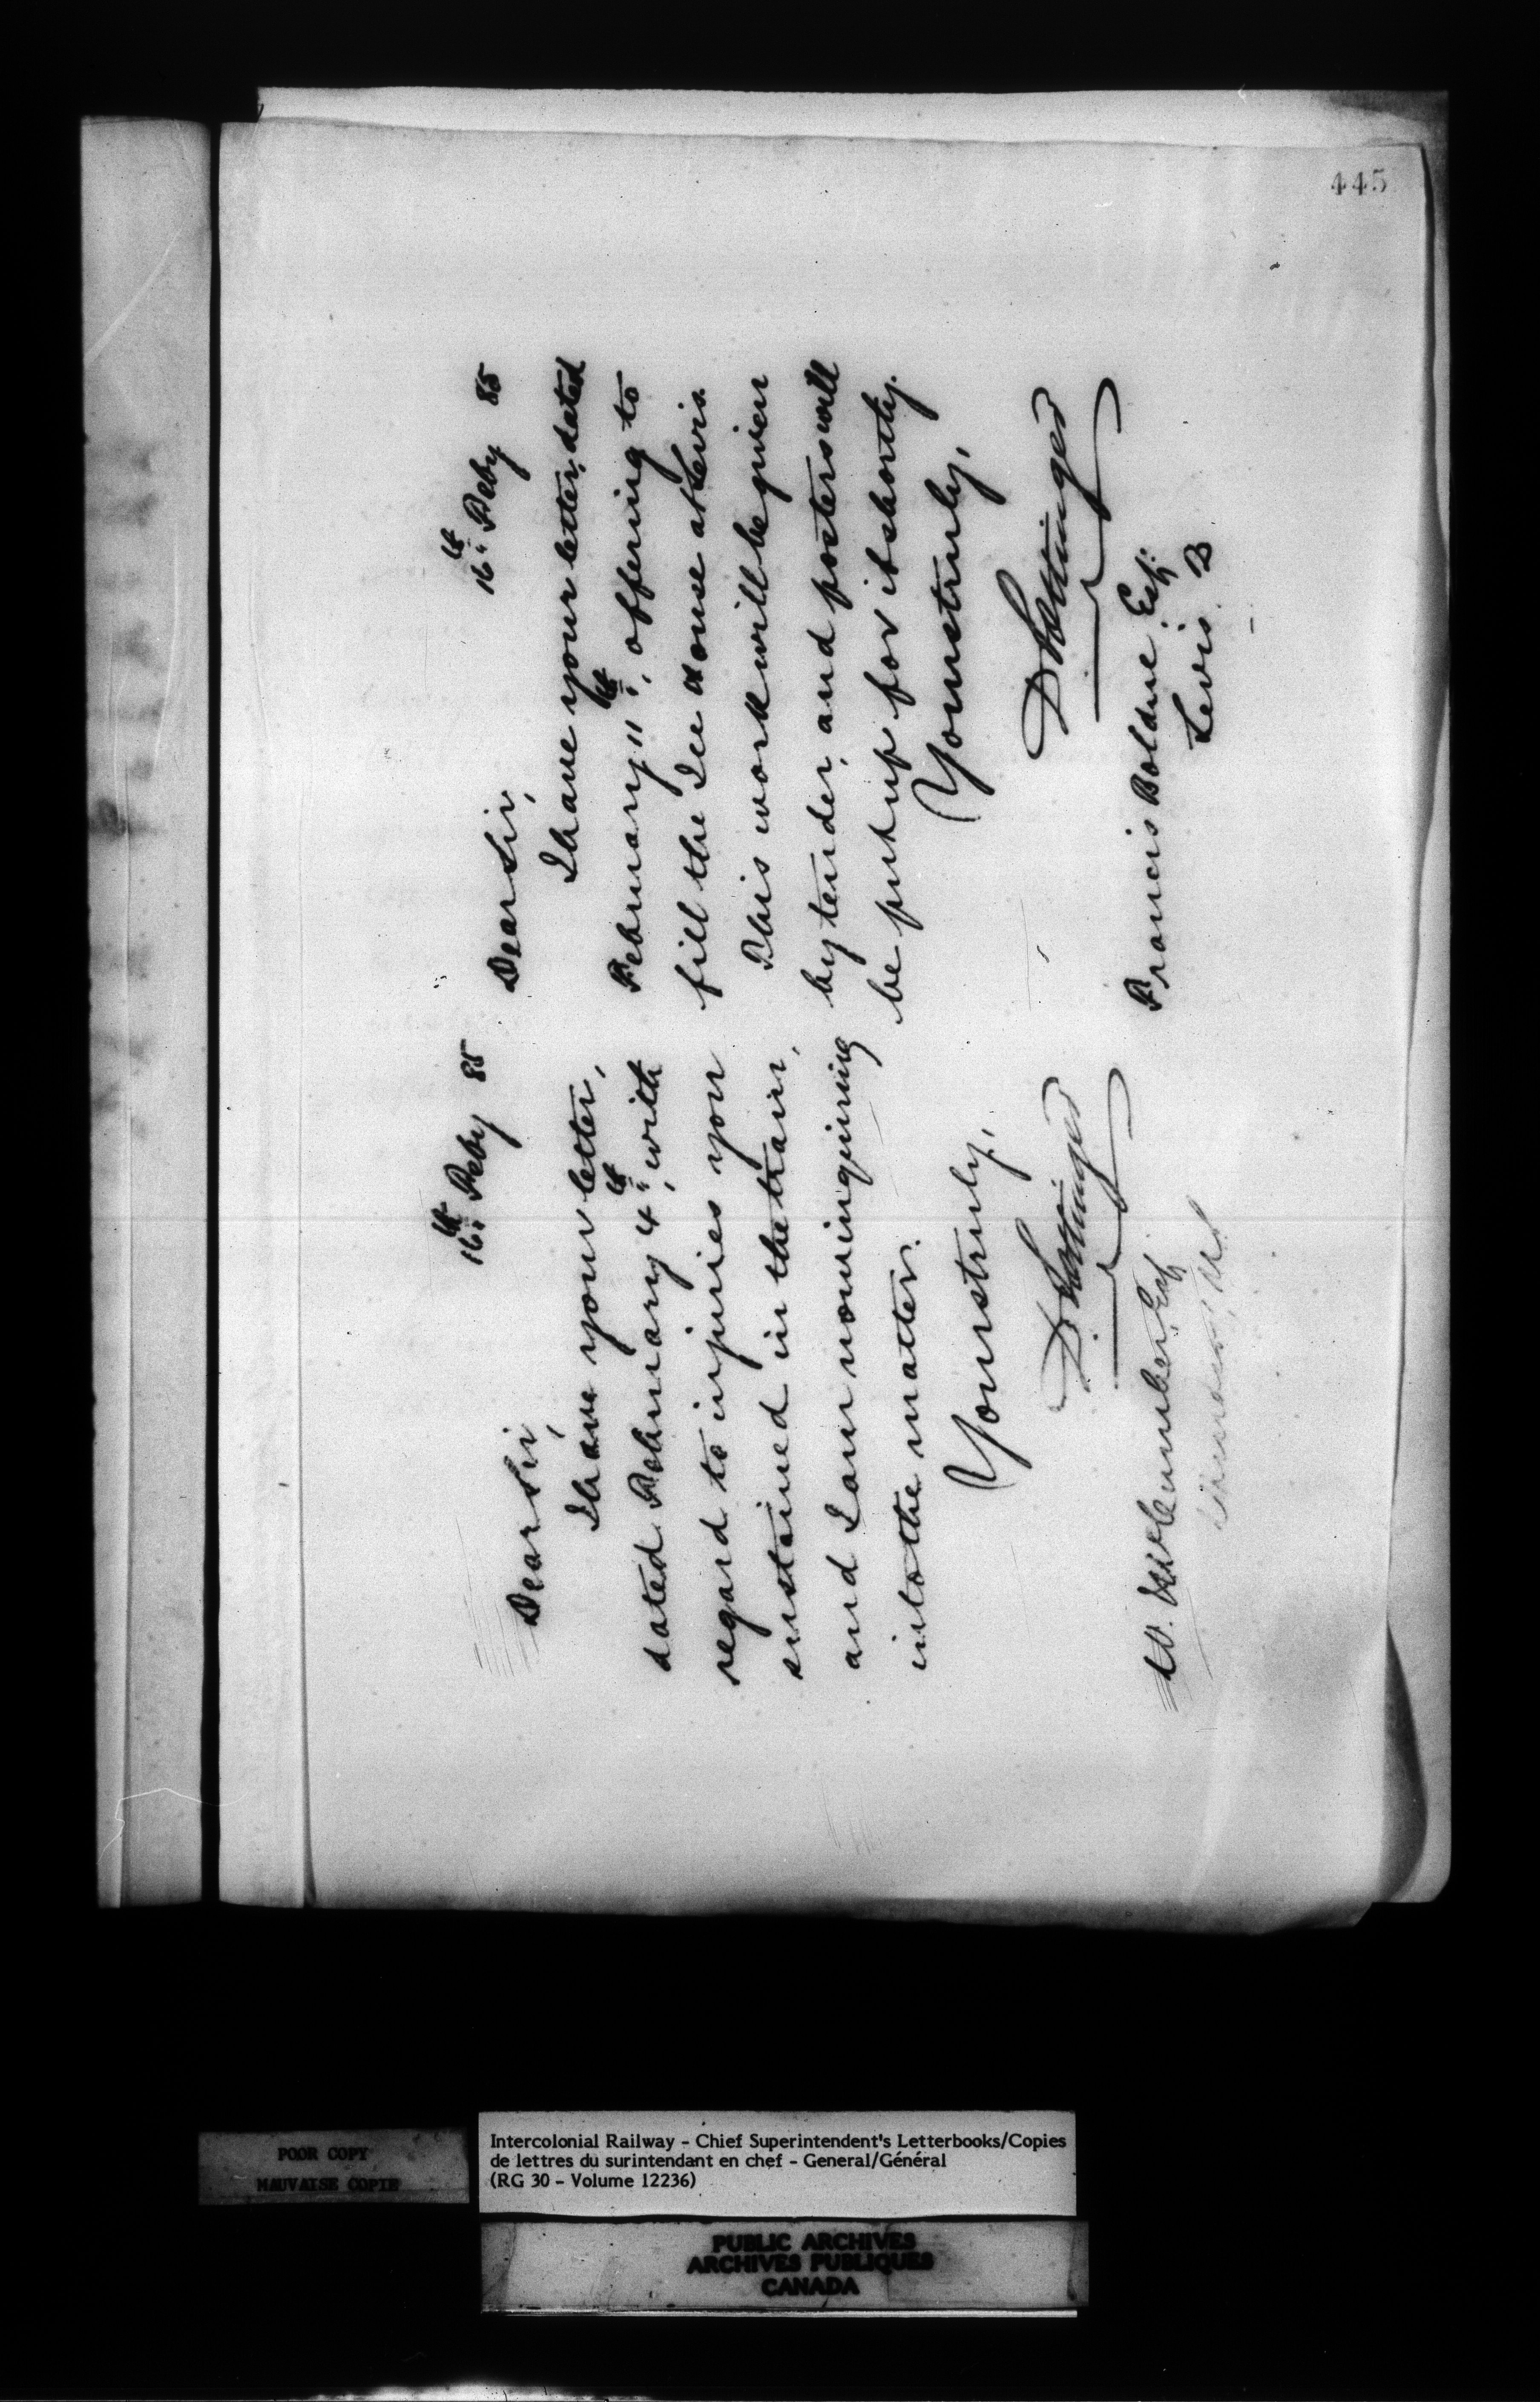 445
16th Feby 85
Dear Sir,
I have your letter,
dated February 4th, with
regard to injuries you
sustained in the train,
and I am now inquiring
into the matter.
Yours truly,
D Pottinger
W. McCumber, Esq
16th Feby 85
Dear Sir,
I have your letter, dated
February 11th, offering to
fill the Ice House at Levis.
This work will be given
by tender, and posters will
be put up for it shortly.
Yours truly,
D Pottinger
Francis Bolduc Esq.
Levis
POOR COPY
MAUVAISE COPIE
Intercolonial Railway - Chief Superintendent's Letterbooks/Copies
de lettres du surintendant en chef - General/Général
(RG 30 - Volume 12236)
PUBLIC ARCHIVES
ARCHIVES PUBLIQUES
CANADA